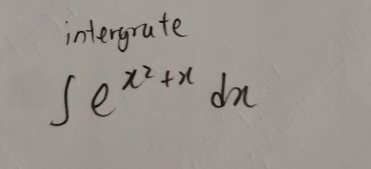 intergrate
∫ e^{x² + x} dx